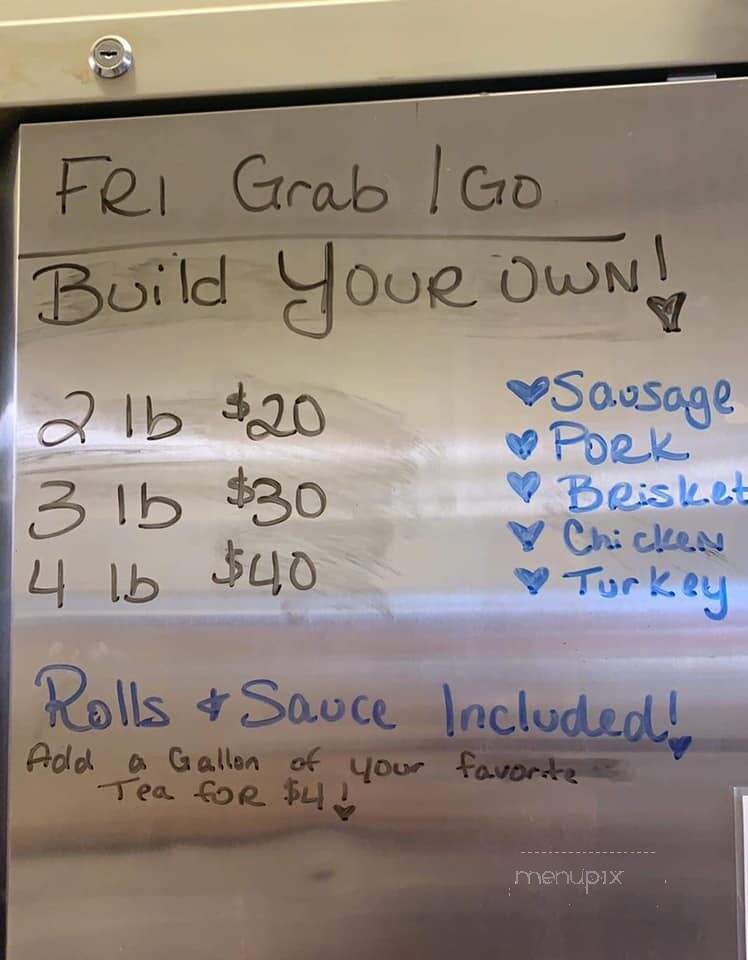 FRI Grab / GO
Build YOUR OWN!
2 lb $20
3 lb $30
4 lb $40
Sausage
Pork
Brisket
Chicken
Turkey
Rolls & Sauce Included!
Add a Gallon of your favorite
Tea for $4!
menupix